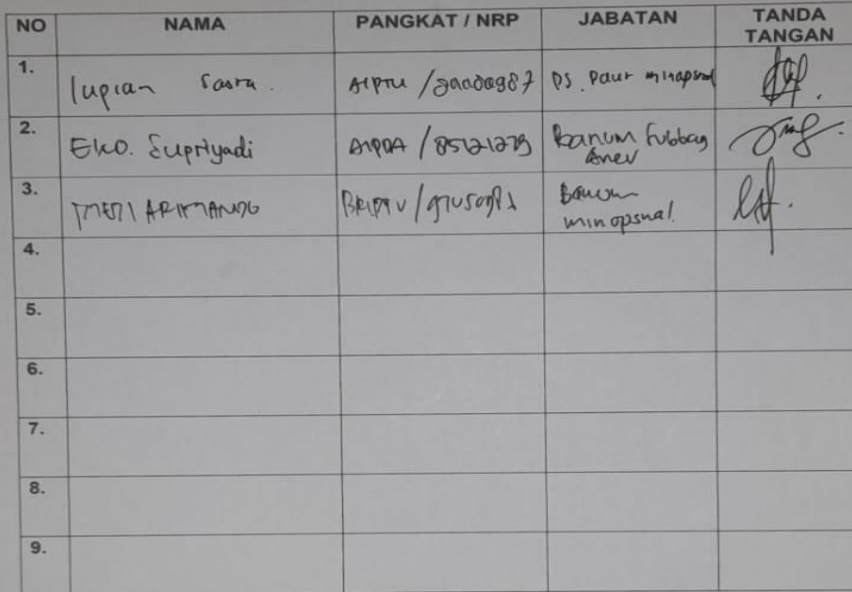 NO NAMA PANGKAT / NRP JABATAN TANDA TANGAN
1. lupian Sastra. AIPTU / PS. Paur minopsnal
2. Eko. Supriyadi AIPDA / 85121279 Banum Subbag
Anev
3. ARIMANDO BRIPTU / Banum
minopsnal.
4.
5.
6.
7.
8.
9.